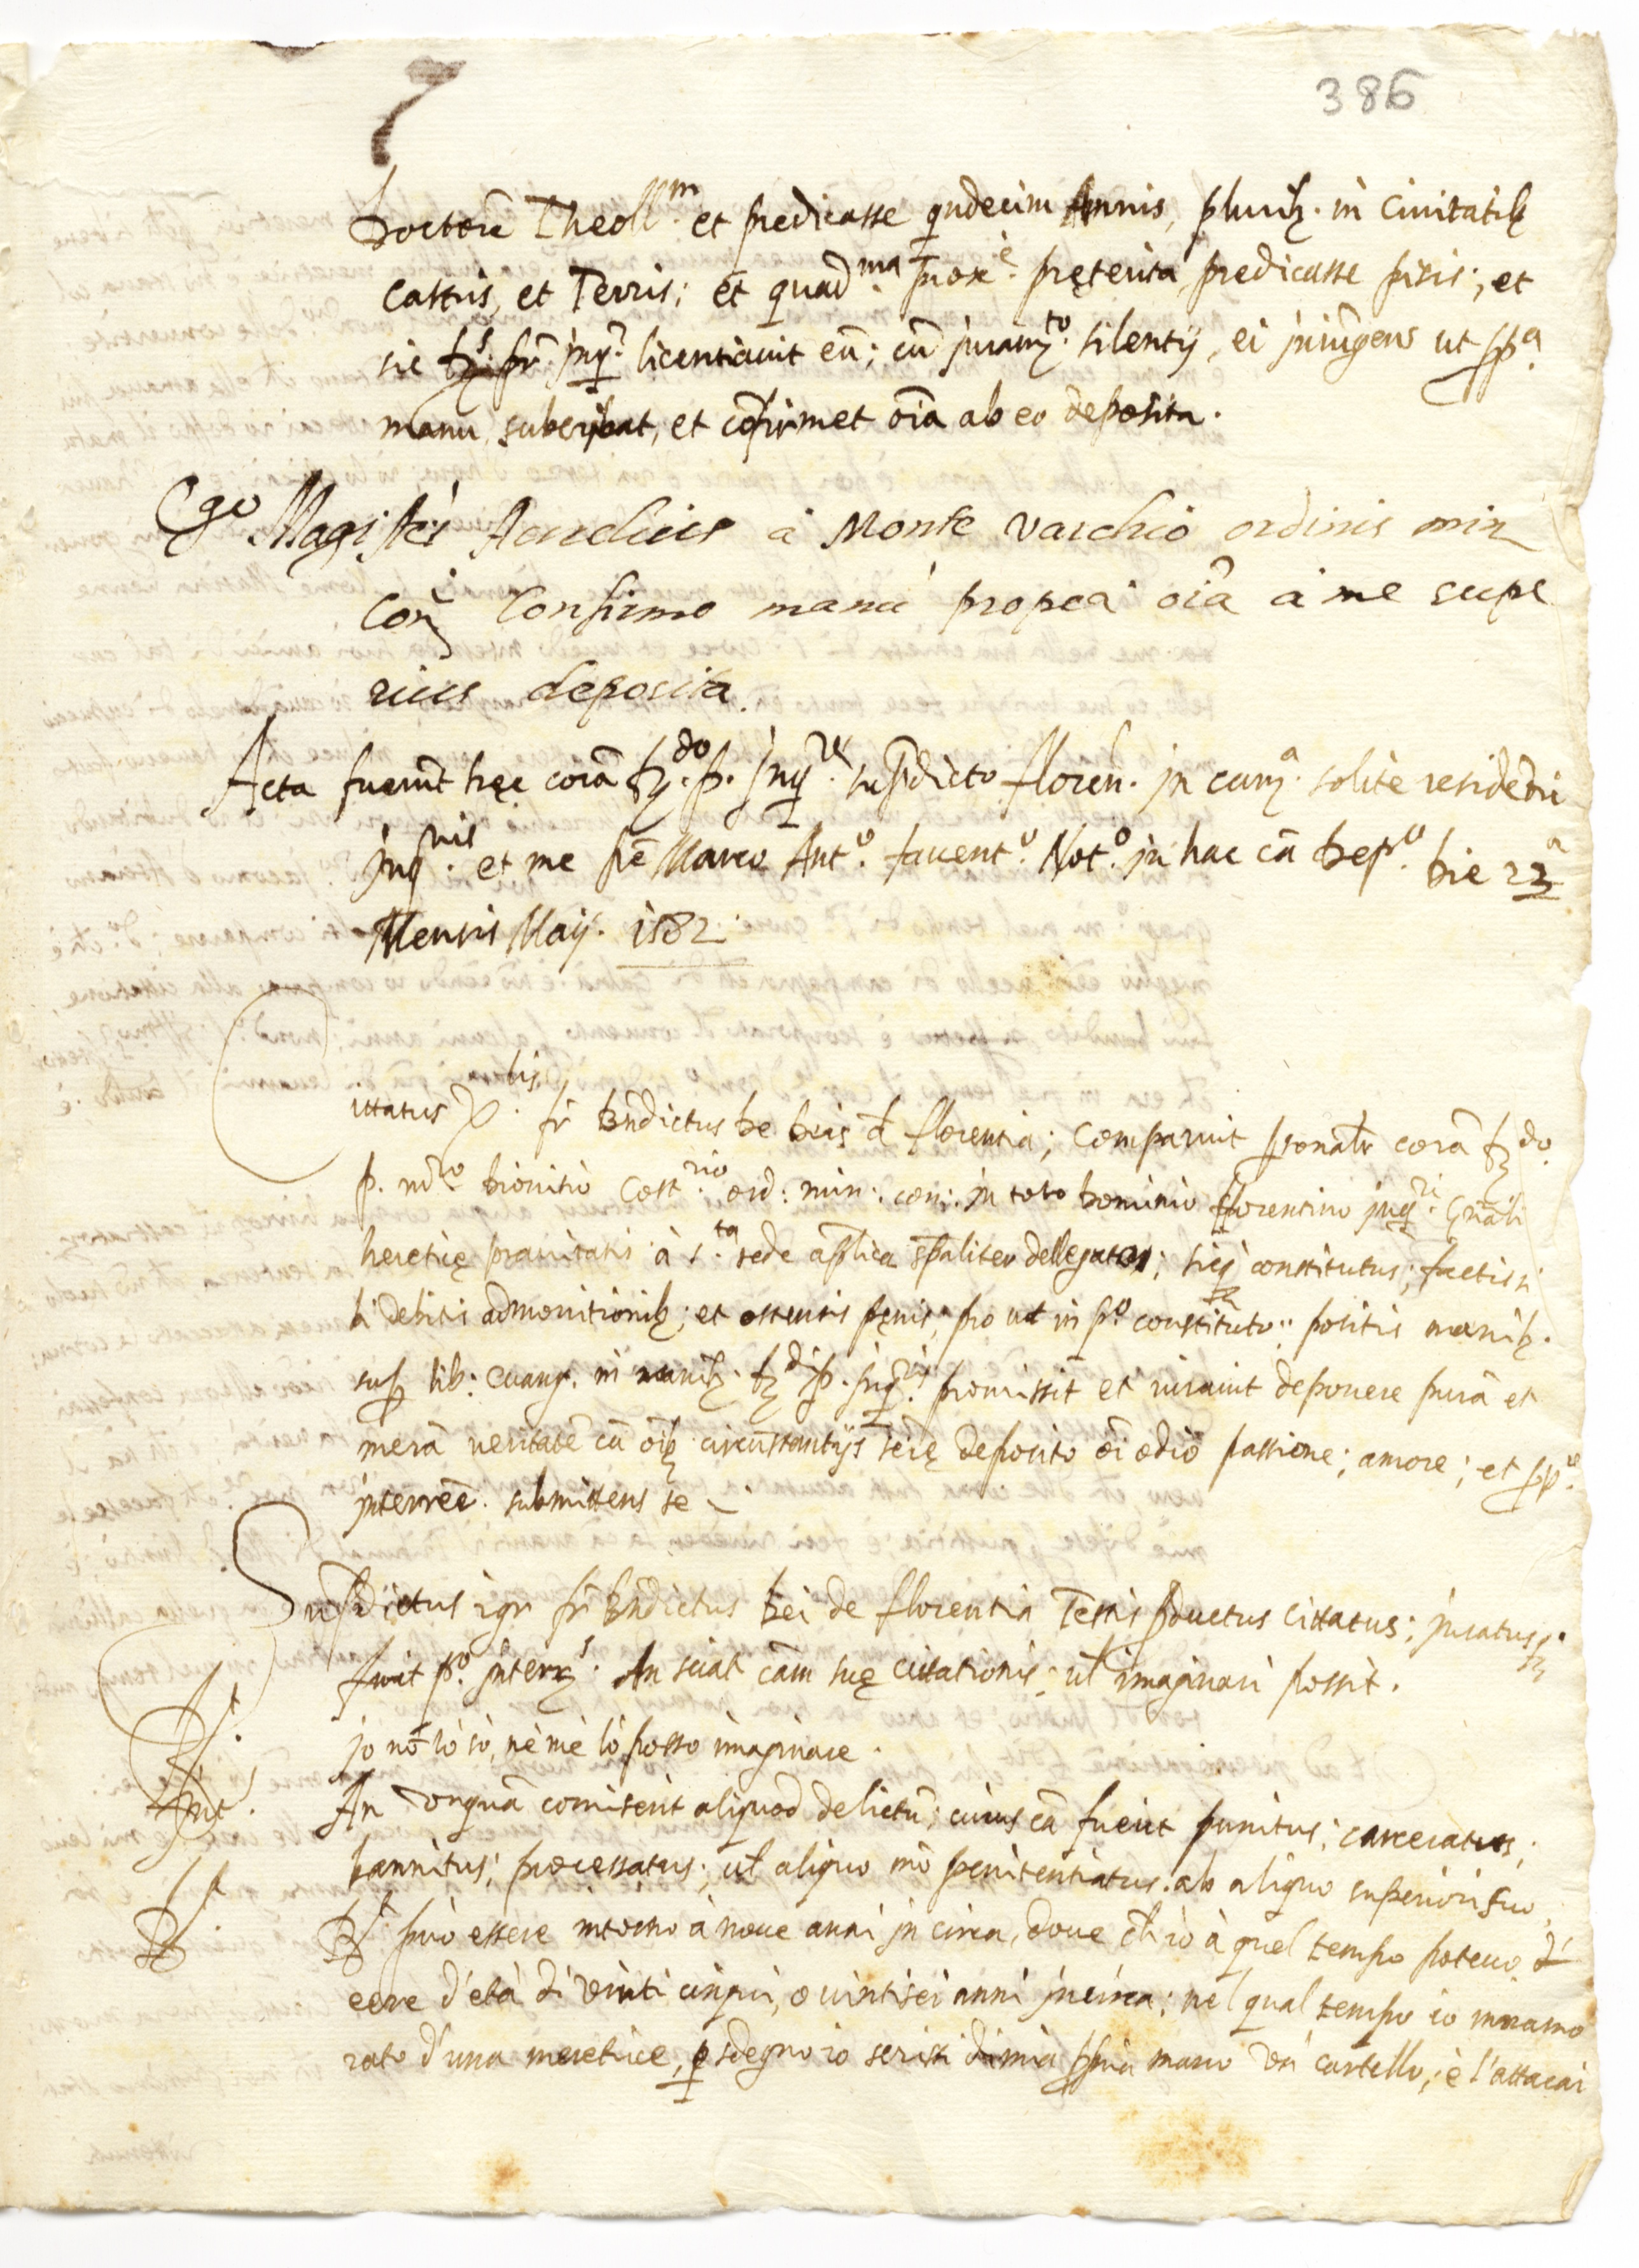 7
386
Doctorē Theoll.m et predicasse qndecim Annis, pluriʒ. in Civitatibʒ
Castris, et Terris; et quad.ma proxe. pręterita predicasse pisis; et
sic licentiavit eū; cū juramto. silentij, ei jniūgens ut ppa.
manu subscribat, et cōfirmet oīa ab eo deposita.
Ego Magister Aurelius à Monte Varchio ordinis min
Con Confirmo manu propea oiā a me supe
rius deposita.
Acta fuerūt hęc corā Rdo. p. jnqre. supdicto floren. jn cam.a solite residētie
jnqnis. et me frē Marco Anto. favento. Noto. jn hac cā depto. die 22a
Mensis Maij. 1582
Cittatus plis. fr Bndictus de deis d florentia; Comparuit psonalr corā Rdo.
p. mro dionisio Costrio. ord: min: con: jn toto dominio florentino jnqri. Gnali
heretice pravitatis à s.ta sede aplica spaliter dellegato; sicq constitutus; factis si
bi debitis admonitionibʒ; et ostensis pęnis, pro ut in po constituto; positis manibʒ.
sup lib: evang. in manibʒ. Rdi p. jnqris. promissit et iuravit deponere purā et
merā veritatē cū oibʒ circūstantijs serię deposito oi odio passione; amore; et ppe.
jnterreē. submittens se
Supdictus igr fr Bndictus dei de florentia Testis pductus Cittatus; juratus
fuit po. jnterrs. An sciat cām suę cittationis, ul imaginari possit.
Rt. jo nō lo sò, nè me lo posso imaginare.
Int. An unquā comiserit aliquod delictū; cuius cā fuerit punitus; carceratus;
bannitus; processatus; ul aliquo mō penitentiatus. ab aliquo superiori suo.
Rt. Rt può essere intorno a nove anni jn circa, dove ch io à quel tempo potevo d
eere d'età di vinti cinqui, o vintisei anni jncirca; nel qual tempo io innamo
rato d'una meretrice, p sdegno io scrissi di mia ppria mano un cartello, è l'attacai